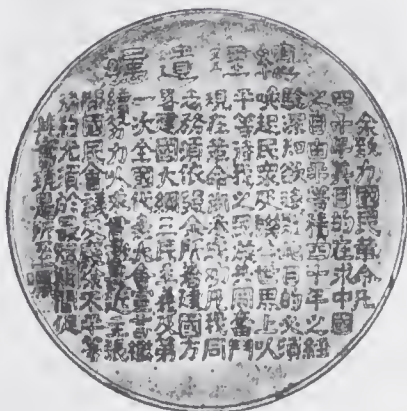 總理遺囑
余致力國民革命凡
四十年其目的在求中國
之自由平等積四十年之經
驗深知欲達到此目的必須
喚起民眾及聯合世界上以
平等待我之民族共同奮鬥
現在革命尚未成功凡我同
志務須依照余所著建國方
畧建國大綱三民主義及第
一次全國代表大會宣言繼
續努力以求貫徹最近主張
開國民會議及廢除不平等
條約尤須於最短期間促
其實現是所至囑